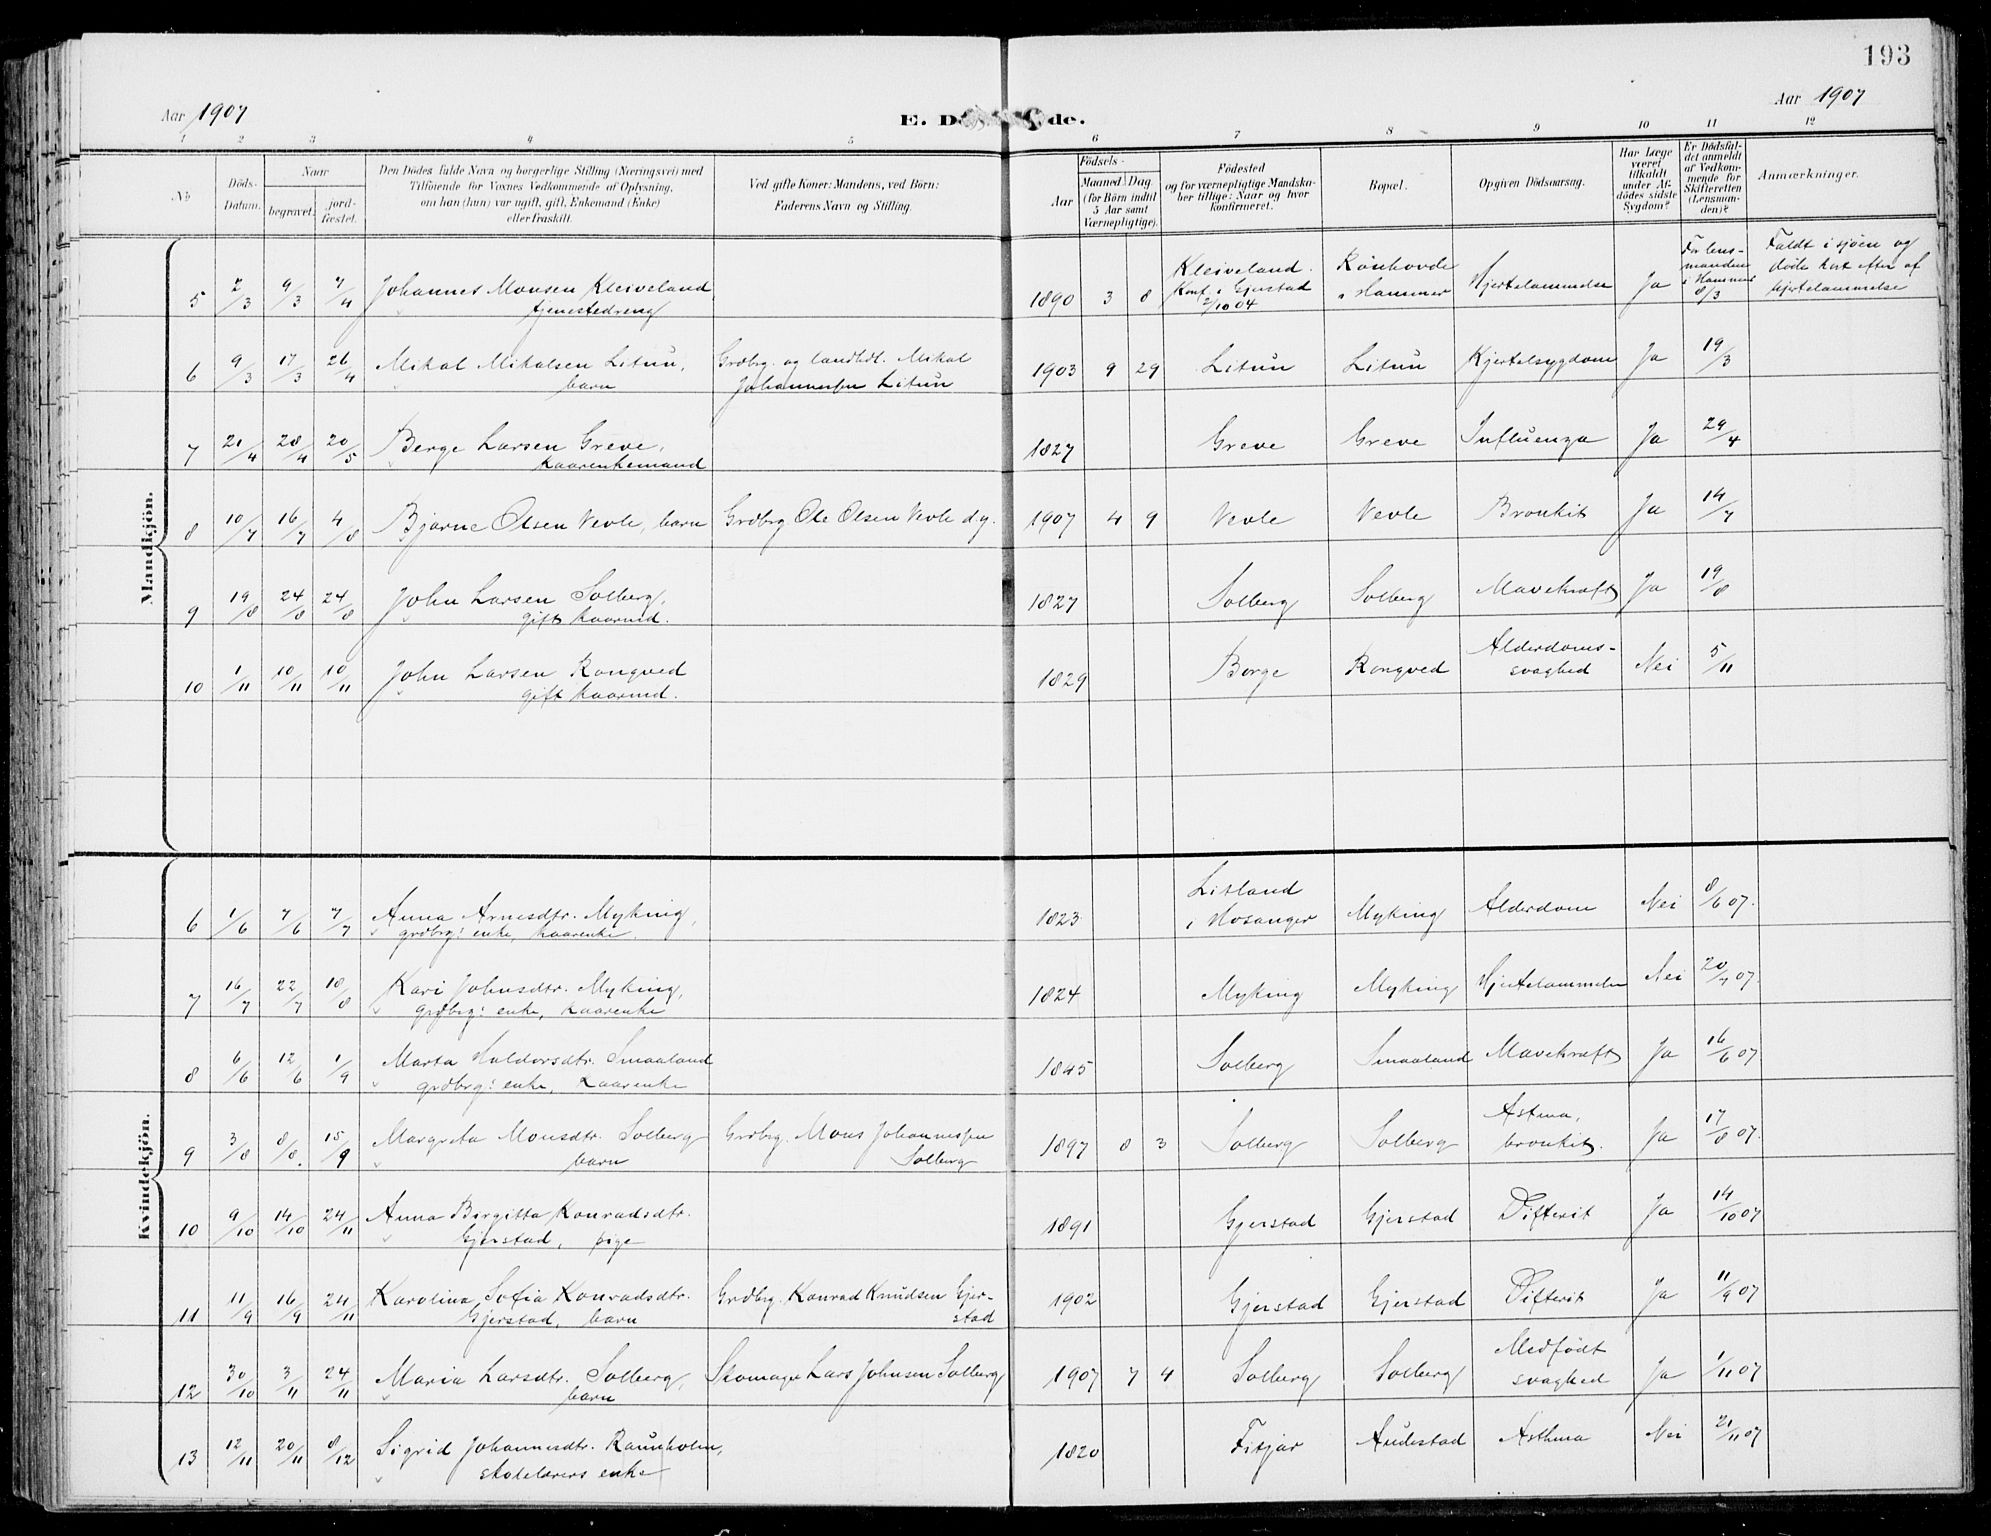 193
Aar 1907
E. D de.
Aar 1907
1 2 3 4 5 6 7 8 9 10 11 12
No
Döds-Datum.
Naar
begravet.
jord-fæstet.
Den Dödes fulde Navn og borgerlige Stilling (Næringsvei) med
Tilföiende for Voxnes Vedkommende af Oplysning,
om han (hun) var ugift, gift, Enkemand (Enke)
eller fraskilt.
Ved gifte Koner: Mandens, ved Börn:
Faderens Navn og Stilling.
Födsels-
Aar
Maaned Dag
(for Börn indtil
5 Aar samt
Værnepligtige).
Födested
og for værnepligtige Mandska-
ber tillige: Naar og hvor
konfirmeret.
Bopæl.
Opgiven Dödsaarsag.
Har Læge
været
tilkaldt
under Af-
dödes sidste
Sygdom?
Er Dödsfal-
det anmeldt
af Vedkom-
mende for
Skifteretten
(Lensman-
den)?
Anmærkninger.
Mandkjön.
5 2/3 9/3 7/4 Johannes Monsen Kleiveland tjenestedreng 1890 3 8 Kleiveland. Konf. i Gjerstad 2/10 04 Rönhovde i Hammer Hjertelammelse Ja For lens-manden i Hammer 8/3 Faldt i sjöen og döde kort efter af hjertelammelse
6 9/3 17/3 26/4 Mikal Mikalsen Litun, barn Grdbrg. og landhdl. Mikal Johannessen Litun 1903 9 29 Litun Litun Kjertelsygdom Ja 19/3
7 21/4 28/4 20/5 Berge Larsen Greve, kaarenkemand 1827 Greve Greve Influenza Ja 29/4
8 10/7 16/7 4/8 Bjarne Olsen Vevle, barn Grdbrg. Ole Olsen Vevle d.y. 1907 4 9 Vevle Vevle Bronkit Ja 14/7
9 19/8 24/8 24/8 John Larsen Solberg, gift kaarmd. 1827 Solberg Solberg Mavekræft Ja 19/8
10 1/11 10/11 10/11 John Larsen Rongved gift kaarmd. 1829 Borge Rongved Alderdoms-svaghed Nei 5/11
Kvindekjön.
6 1/6 7/6 7/7 Anna Arnesdtr. Myking, grdbrg: enke, kaarenke. 1823 Litland i Hosanger Myking Alderdom Nei 8/6 07.
7 16/7 22/7 18/8 Kari Johnsdtr. Myking, grdbrg: enke, kaarenke 1824 Myking Myking Hjertelammelse Nei 20/7 07.
8 6/6 12/6 1/9 Marta Haldorsdtr. Smaaland grdbrg: enke, kaarenke 1845 Solberg Smaaland Mavekræft Ja 16/6 07
9 3/8 8/8. 15/9 Margreta Monsdtr. Solberg barn Grdbrg. Mons Johannessen Solberg 1897 8 3 Solberg Solberg Astma, bronkit. Ja 17/8 07.
10 9/10 14/10 24/11 Anna Birgitta Konradsdtr. Gjerstad, pige 1891 Gjerstad Gjerstad Difterit Ja 14/10 07
11 11/9 16/9 24/11 Karolina Sofia Konradsdtr. Gjerstad, barn Grdbrg. Konrad Knudsen Gjer-stad 1902 Gjerstad Gjerstad Difterit Ja 11/9 07
12 30/10 3/11 24/11 Maria Larsdtr. Solberg, barn Skomager Lars Johnsen Solberg 1907 7 4 Solberg Solberg Medfödt svaghed Ja 1/11 07
13 12/11 20/11 8/12 Sigrid Johannesdtr. Raunholm, skolelærers enke 1820 Fitjar Audestad Asthma Nei 21/11 07